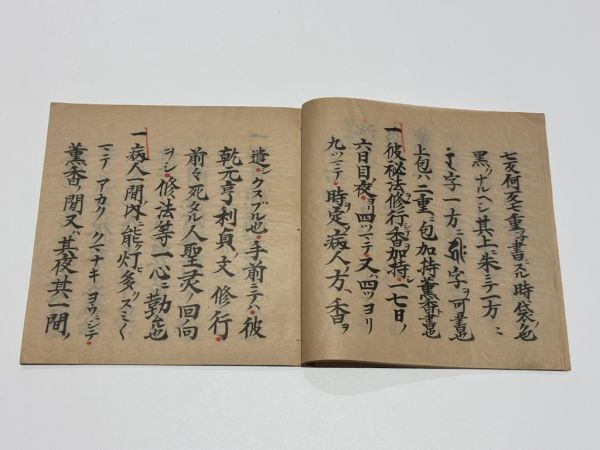 七反何反モ七重ニ書スル時袋ノ色
黒ツナルヘシ其上ニ朱ニテ一方ニ
字一方ニ 字ヲ可書也
上包ハ二重ニ包加持薫香書也
一彼秘法修行香加持ハ一七日ノ
六日目夜ヨリ四ツマテ又四ツヨリ
九ツマテ時定病人ノ方ヘ香ヲ
遣シクスブル也手前ニテハ彼
乾元亨利貞ノ文修行
前々死タル人聖灵ノ回向
ヲシ修法等一心ニ勤ル也
一病人一間ノ内ニ能灯多クスミ〱
マテアカククマナキヨウニシテ
薫香ノ間又其夜其一間ノ